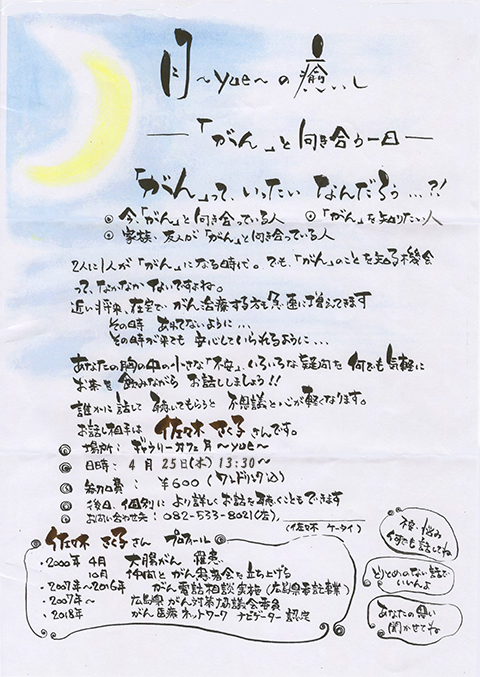 月～yue～の癒いし
―「がん」と向き合う一日―
「がん」って、いったい なんだろう…?!
◎今、「がん」と向き合っている人 ◎「がん」を知りたい人
◎家族、友人が「がん」と向き合っている人
2人に1人が「がん」になる時代。でも、「がん」のことを知る機会
って、なかなかないですよね。
近い将来、在宅でがん治療する方も急速に増えてきます
その時 あわてないように…
その時が来ても 安心していられるように…
あなたの胸の中の小さな「不安」、いろいろな疑問を 何でも気軽に
お茶を飲みながら お話ししましょう!!
誰かに話して 聴いてもらうと 不思議と心が軽くなります。
お話し相手は 佐々木 さく子さんです。
◎ 場所: ギャラリーカフェ 月～yue～
◎ 日時: 4月25日(木) 13:30～
◎ 参加費: ¥600 (ワンドリンク込)
◎ 後日、個別に より詳しくお話を聴くこともできます
◎ お問い合わせ先: 082-533-8021(店)、
(佐々木 ケータイ)
佐々木 さく子さん プロフィール
・2000年 4月 大腸がん 罹患
10月 仲間とがん患者会を立ち上げる
・2007年～2016年 がん電話相談実施 (広島県委託事業)
・2007年～ 広島県がん対策協議会委員
・2018年 がん医療ネットワークナビゲーター認定
不安・悩み
何でも話してね
とりとめのない話で
いいんよ
あなたの思い
聞かせてね